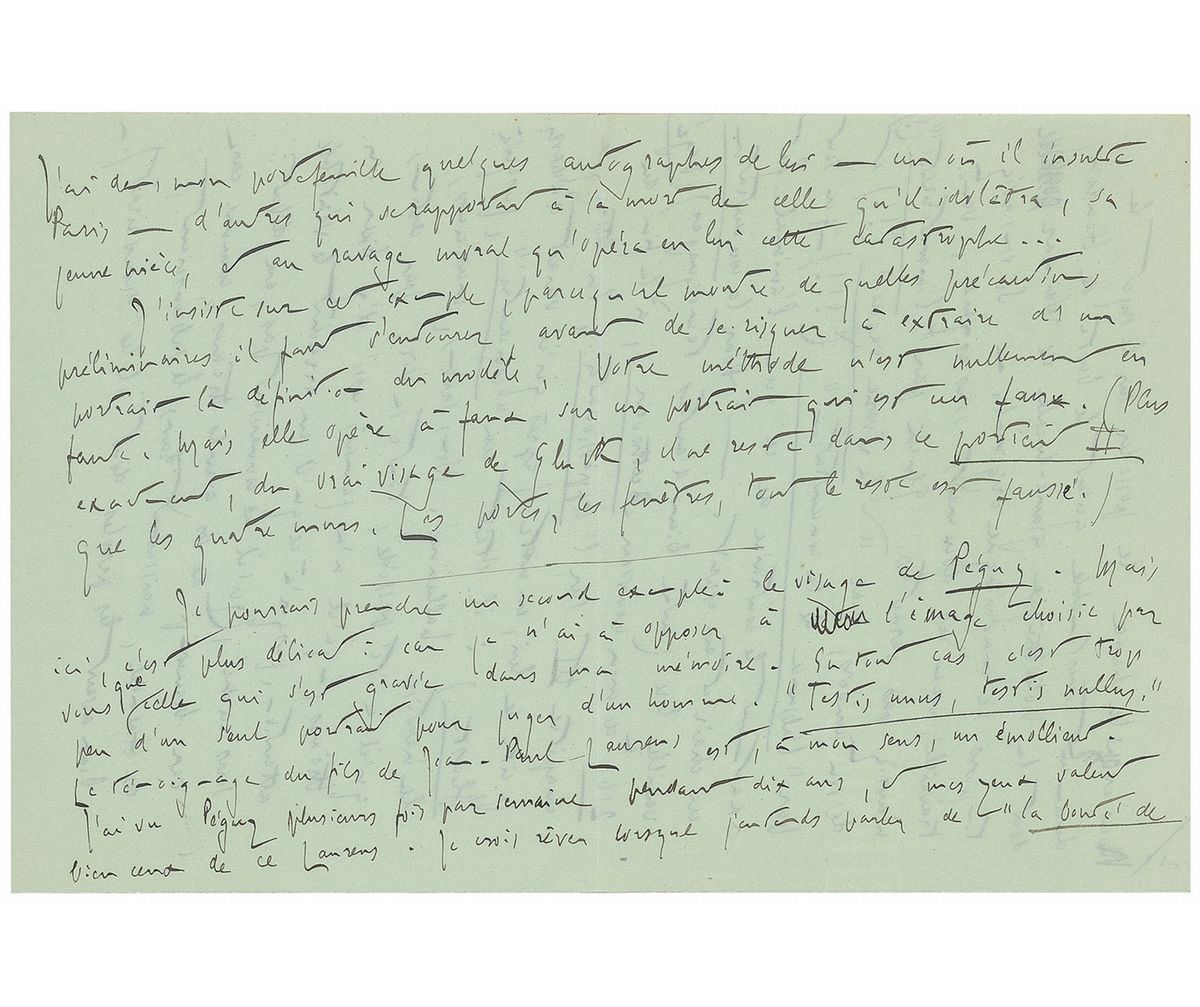 J'ai dans mon portefeuille quelques autographes de lui — un où il insulte
Paris — d'autres qui se rapportent à la mort de celle qu'il idolâtra, sa
jeune nièce, et au ravage moral qu'opéra en lui cette catastrophe...
J'insiste sur cet exemple, parcequ'il montre de quelles précautions
préliminaires il faut s'entourer avant de se risquer à extraire d'un
portrait la définition du modèle. Votre méthode n'est nullement en
faute. Mais elle opère à faux sur un portrait qui est un faux. (Plus
exactement, du vrai visage de Gluck, il ne reste dans ce portrait
que les quatre murs. Les portes, les fenêtres, tout le reste est faussé.)
Je pourrais prendre un second exemple : le visage de Péguy. Mais
ici, c'est plus délicat : car je n'ai à opposer à l'image choisie par
vous que celle qui s'est gravée dans ma mémoire. En tout cas, c'est trop
peu d'un seul portrait pour juger d'un homme. "Testis unus, testis nullus."
Le témoignage du fils de Jean-Paul Laurens est, à mon sens, un émollient.
J'ai vu Péguy plusieurs fois par semaine pendant dix ans, et mes yeux valent
bien ceux de ce Laurens. Je crois rêver lorsque j'entends parler de "la bonté de